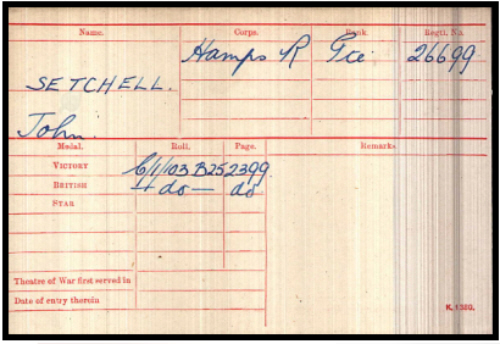 Name. Corps. Rank. Regtl. No.
Hamps R Pte 26699
SETCHELL.
John.
Medal. Roll. Page. Remarks.
VICTORY C/1/103 B25 2399
BRITISH — do — do
STAR
Theatre of War first served in
Date of entry therein
K. 1380.